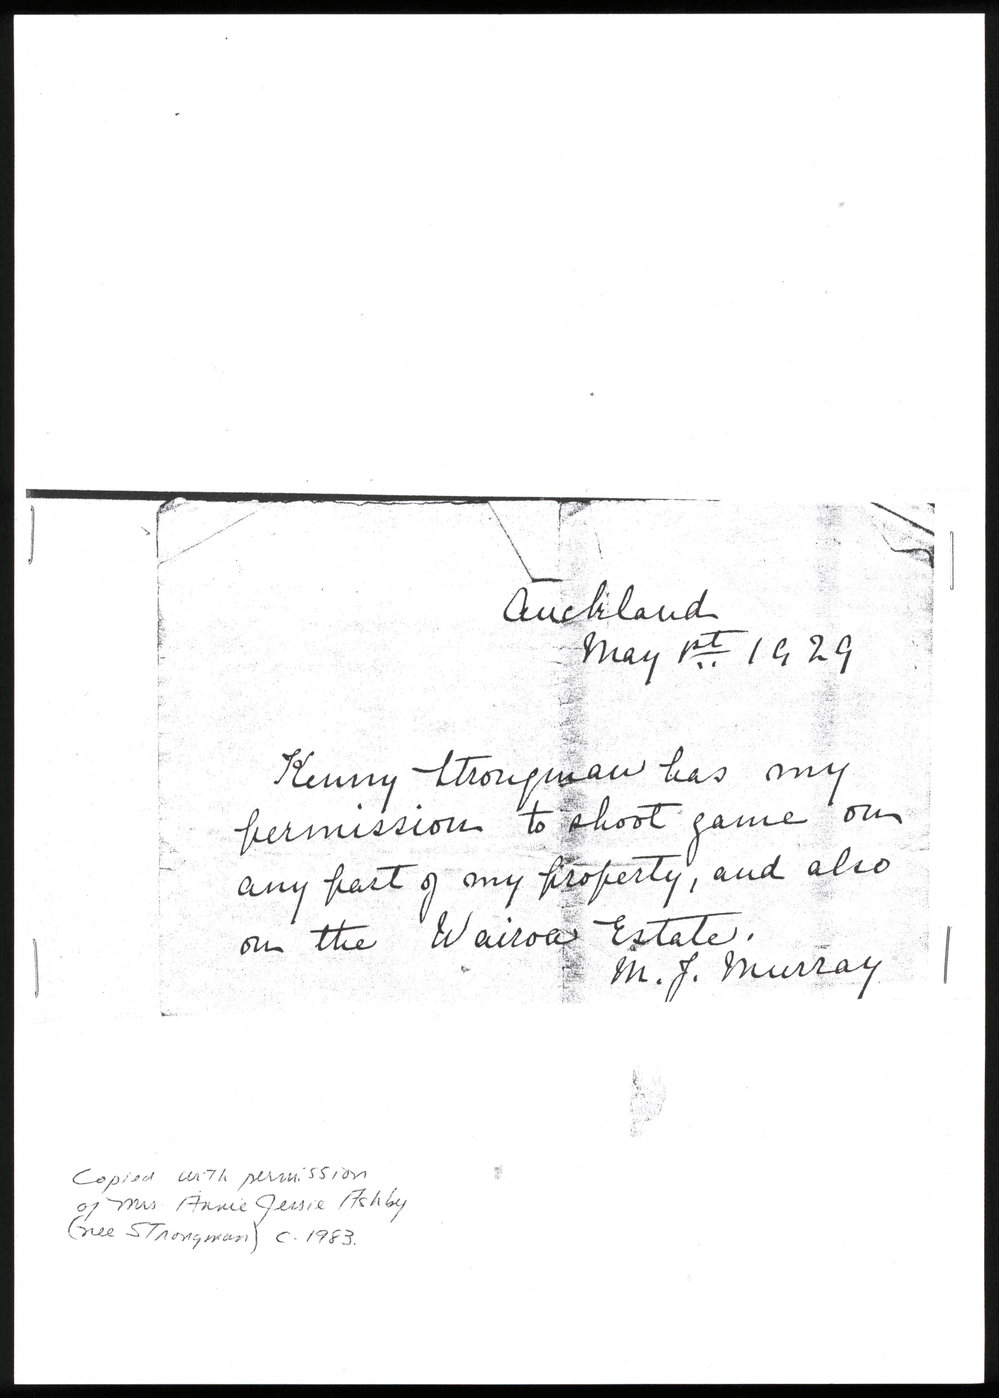 Auckland
May 1st 1929
Kenny Strongman has my
permission to shoot game on
any part of my property, and also
on the Wairoa Estate.
M. J. Murray
Copied with permission
of Mrs Annie Jessie Ashby
(nee Strongman) c. 1983.